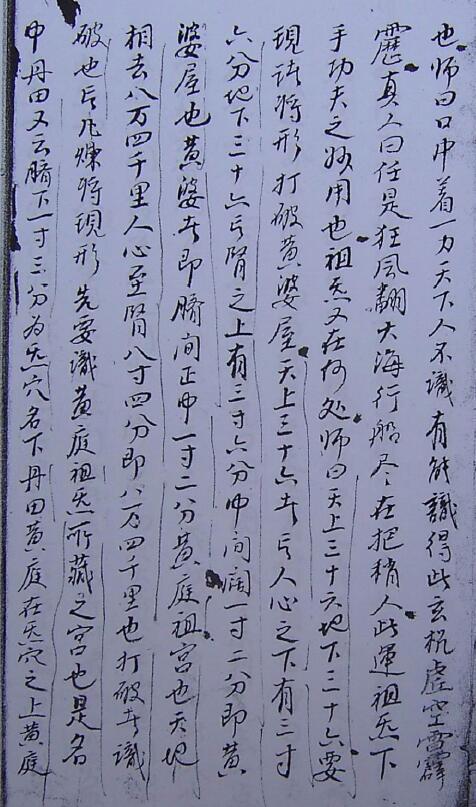 也师曰口中着一力天下人不識有能識得此玄机虚空雷霹
靂真人曰任是狂风翻大海行船尽在把稍人此運祖炁下
手功夫之妙用也祖炁又在何处师曰天上三十六地下三十六要
現法将形打破黄婆屋天上三十六者言人心之下有三寸
六分地下三十六言腎之上有三寸六分中间濶一寸二分即黄
婆屋也黄婆者即臍间正中一寸二分黄庭祖宫也天地
相去八万四千里人心至腎八寸四分即八万四千里也打破者識
破也言凡煉将現形先要識黄庭祖炁所藏之宫也是名
中丹田又云臍下一寸三分为炁穴名下丹田黄庭在炁穴之上黄庭